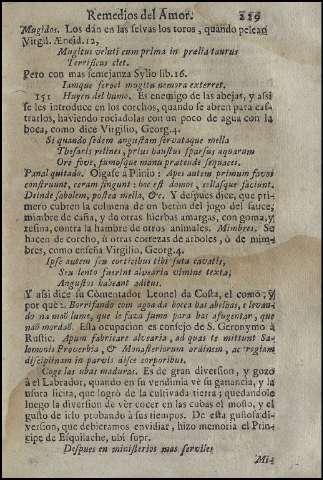 Remedios del Amor. 229
Mugidos. Los dán en las selvas los toros, quando pelean
Virgil. Æneid. 12,
Mugitus veluti cum prima in prælia taurus
Terrificus ciet.
Pero con mas semejanza Sylio lib. 16.
Iamque ferocï mugitu nemora exterret.
151 Huyen del humo. Es enemigo de las abejas, y assi
se les introduce en los corchos, quando se abren para cas-
trarlos, haviendo rociadolos con un poco de agua con la
boca, como dice Virgilio, Georg. 4.
Si quando sedem angustam servataque mella
Thesauris relines, prius haustus sparsus aquarum
Ore fove, fumosque manu prætende sequaces.
Panal quitado. Oigase à Plinio: Apes autem primum favos
construunt, ceram fingunt: hoc est domos, cellasque faciunt.
Deinde sobolem, postea mella, &c. Y despues dice, que pri-
mero cubren la colmena de un betùn del jugo del sauce,
mimbre de caña, y do otras hierbas amargas, con goma, y
resina, contra la hambre de otros animales. Mimbres. Se
hacen de corcho, ù otras cortezas de arboles, ò de mim-
bres, como enseña Virgilio, Georg.
Ipse autem seu corticibus tibi suta cavatis,
Seu lento fuerint alvearia vimine texta,
Angustos habeant aditus.
Y assi dice su Comentador Leonel da Costa, el como, y
por què: Borrifando con agoa da boca bas abelhas, e levan-
do na maõ lume, que le faza fumo para bas afugentar, que
naõ mordaõ. Esta ocupacion es consejo de S. Geronymo à
Rustic. Apum fabricare alvearia, ad quas te mittunt Sa-
lomonis Proverbia, & Monasteriorum ordinem, ac regiam
disciplinam in parvis disce corporibus.
Coge las ubas maduras. Es de gran diversion, y gozo
à el Labrador, quando en su vendimia vè su ganancia, y la
usura licita, que logrò de la cultivada tierra; quedandole
luego la diversion de vèr cocer en las cubas el mosto, y el
gusto de irlo probando à sus tiempos. De esta gustosa di-
version, que debieramos envidiar, hizo memoria el Prin-
cipe de Esquilache, ubi supr.
Despues en ministerios mas serviles
Mi-